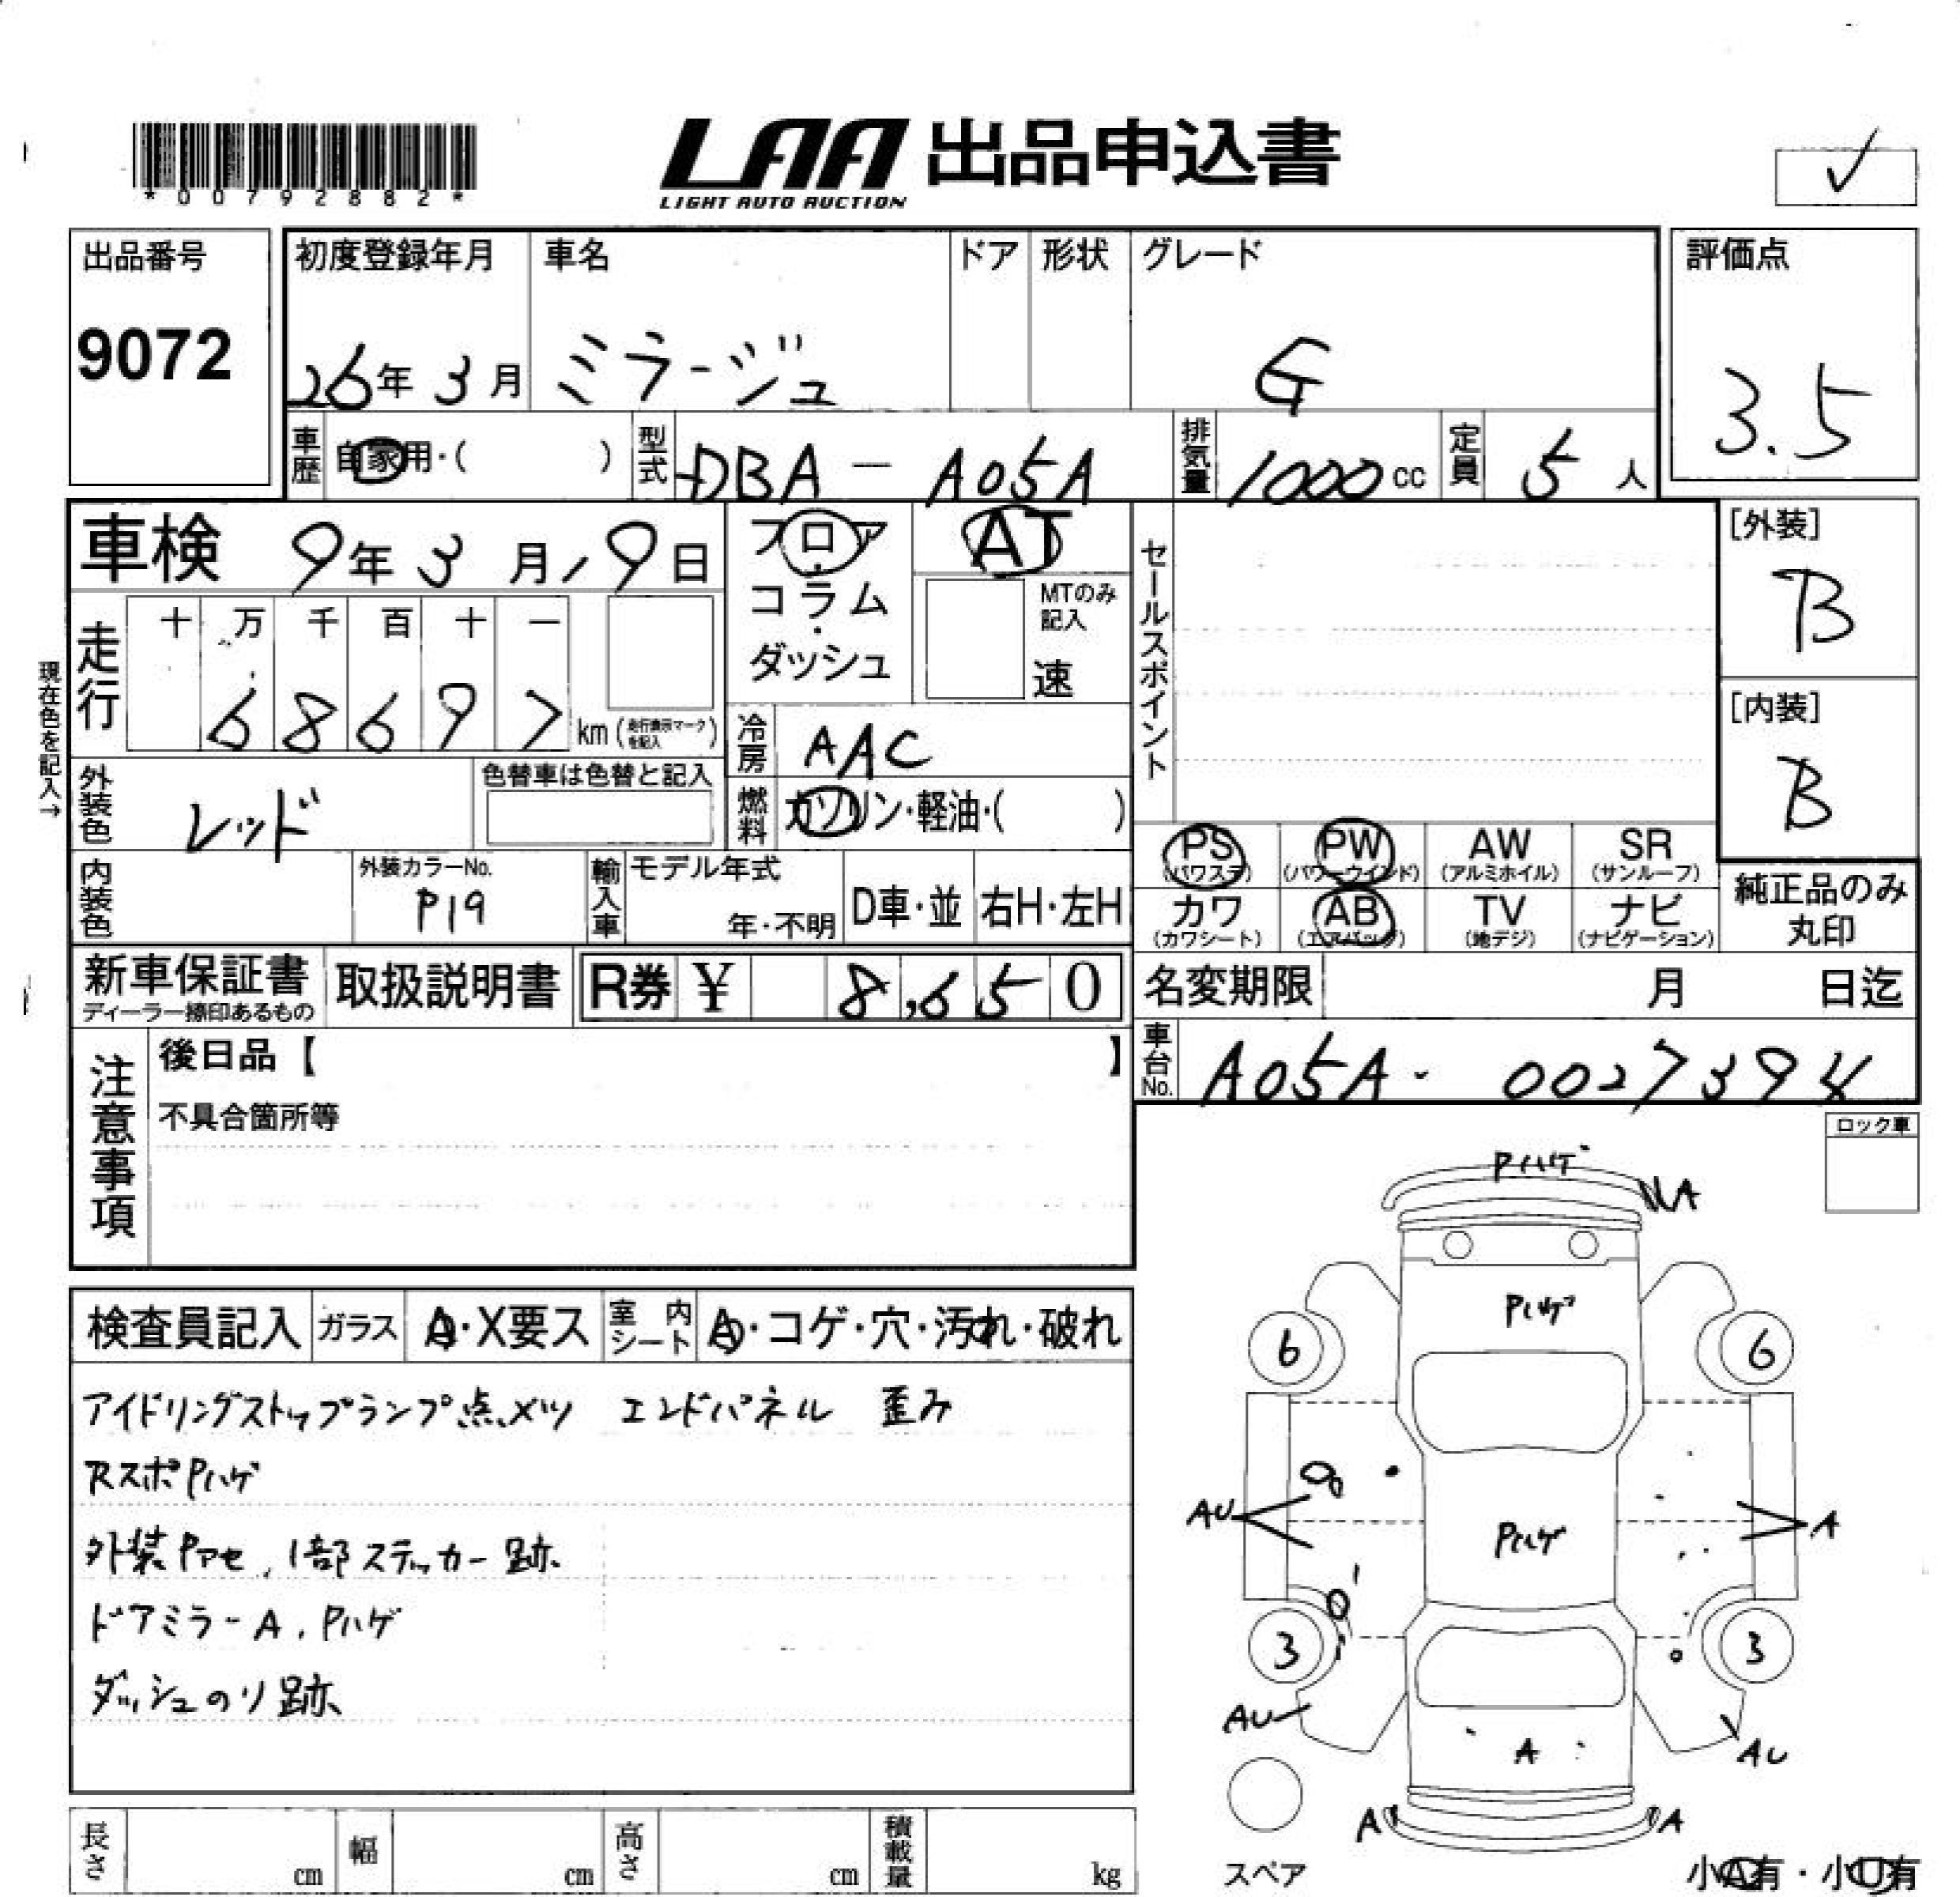 *00792882*
LAA 出品申込書
LIGHT AUTO AUCTION
✓
出品番号
9072
初度登録年月
26年3月
車名
ミラージュ
ドア
形状
グレード
G
評価点
3.5
車歴
自家用・( )
型式
DBA-A05A
排気量
1000cc
定員
5人
車検 9年3月19日
フロア・コラム・ダッシュ
AT
MTのみ記入
速
セールスポイント
[外装]
B
[内装]
B
現在色を記入→
走行
十 万 千 百 十 一
6 8 6 9 7 km(走行表示マークを記入)
冷房
AAC
外装色
レッド
色替車は色替と記入
燃料
ガソリン・軽油・( )
内装色
外装カラーNo.
P19
輸入車
モデル年式
年・不明
D車・並
右H・左H
PS(パワステ)
PW(パワーウインド)
AW(アルミホイル)
SR(サンルーフ)
カワ(カワシート)
AB(エアバッグ)
TV(地デジ)
ナビ(ナビゲーション)
純正品のみ丸印
新車保証書
ディーラー捺印あるもの
取扱説明書
R券 ¥ 8,650
名変期限 月 日迄
車台No.
A05A-0027394
注意事項
後日品【 】
不具合箇所等
ロック車
検査員記入
ガラス
A・X要ス
室内シート
A・コゲ・穴・汚れ・破れ
アイドリングストップランプ点メツ エンドパネル 歪み
Rスポ Pハゲ
外装Pアセ、1部ステッカー跡
ドアミラーA、Pハゲ
ダッシュのり跡
Pハゲ
A
Pハゲ
6
6
AU
Pハゲ
A
3
3
AU
A
AU
A
A
スペア
小A有・小U有
長さ cm
幅 cm
高さ cm
積載量 kg